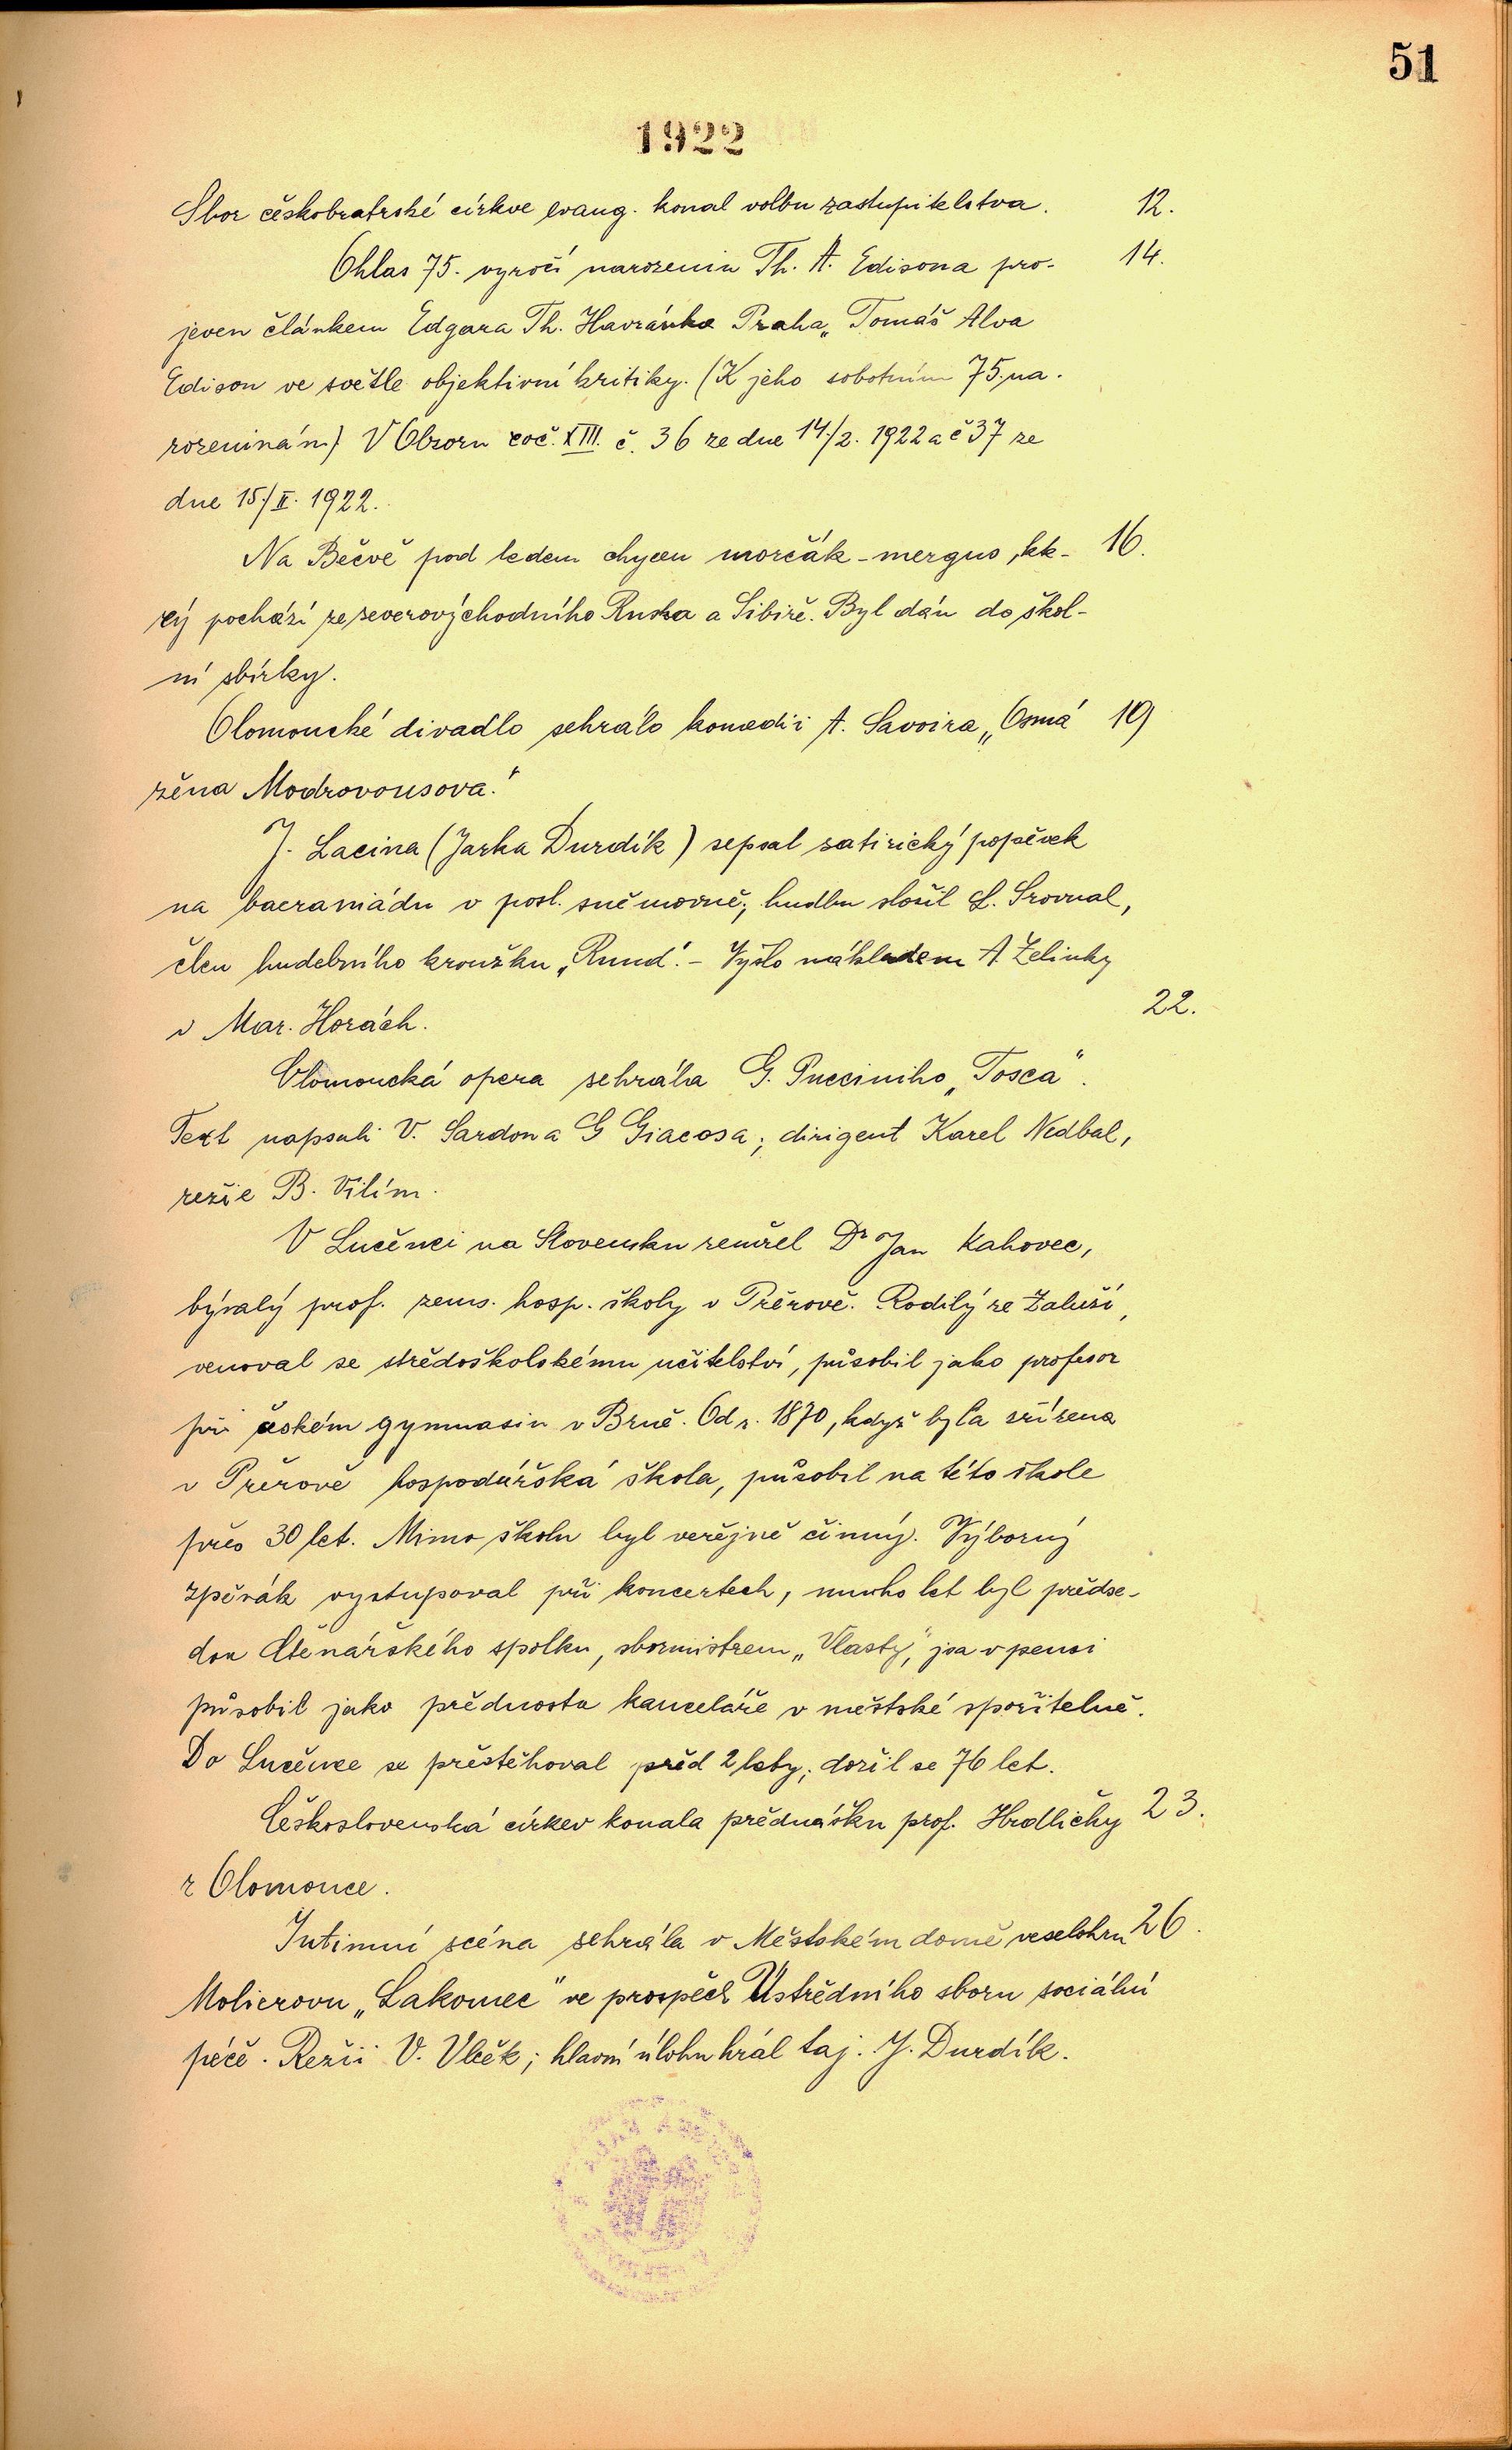 51
1922
Sbor českobratrské církve evang. konal volbu zastupitelstva. 12.
Ohlas 75. vyročí narozenin Th. A. Edisona pro- 14.
jeven článkem Edgara Th. Havránka Praha „Tomáš Alva
Edison ve světle objektivní kritiky. (K jeho sobotním 75. na-
rozeninám) V Obzoru roč. XIII. č. 36 ze dne 14./2. 1922 a č 37 ze
dne 15./II. 1922.
Na Bečvě pod ledem chycen morčák - mergus, kte- 16.
rý pochází ze severovýchodního Ruska a Sibiře. Byl dán do škol-
ní sbírky.
Olomoucké divadlo sehrálo komedii A. Savoira „Osmá 19
žena Modrovousova."
J. Lacina (Jarka Durdík) sepsal satirický popěvek
na bacraniádu v posl. sněmovně; hudbu složil L. Srovnal,
člen hudebního kroužku „Rund". - Vyšlo nákladem A. Zelinky
v Mar. Horách. 22.
Olomoucká opera sehrála G. Pucciniho „Tosca".
Text napsali V. Sardou a G Giacosa; dirigent Karel Nedbal,
režie B. Vilím.
V Lučenci na Slovensku zemřel Dr Jan Kahovec,
bývalý prof. zems. hosp. školy v Přerově. Rodilý ze Záluží,
venoval se středoškolskému učitelství, působil jako profesor
při českém gymnasiu v Brně. Od r. 1870, když byla zřízena
v Přerově hospodářská škola, působil na této škole
přes 30 let. Mimo školu byl veřejně činný. Výborný
zpěvák vystupoval při koncertech, mnoho let byl předse-
dou Čtenářského spolku, sbormistrem „Vlasty", jsa v pensi
působil jako přednosta kanceláře v městské spořitelně.
Do Lučence se přestěhoval před 2 lety; dožil se 76 let.
Československá církev konala přednášku prof. Hrdličky 23.
z Olomouce.
Intimní scéna sehrála v Městském domě veselohru 26.
Molierovu „Lakomec" ve prospěch Ústředního sboru sociální
péče. Režii V. Vlček; hlavní úlohu hrál taj. J. Durdík.